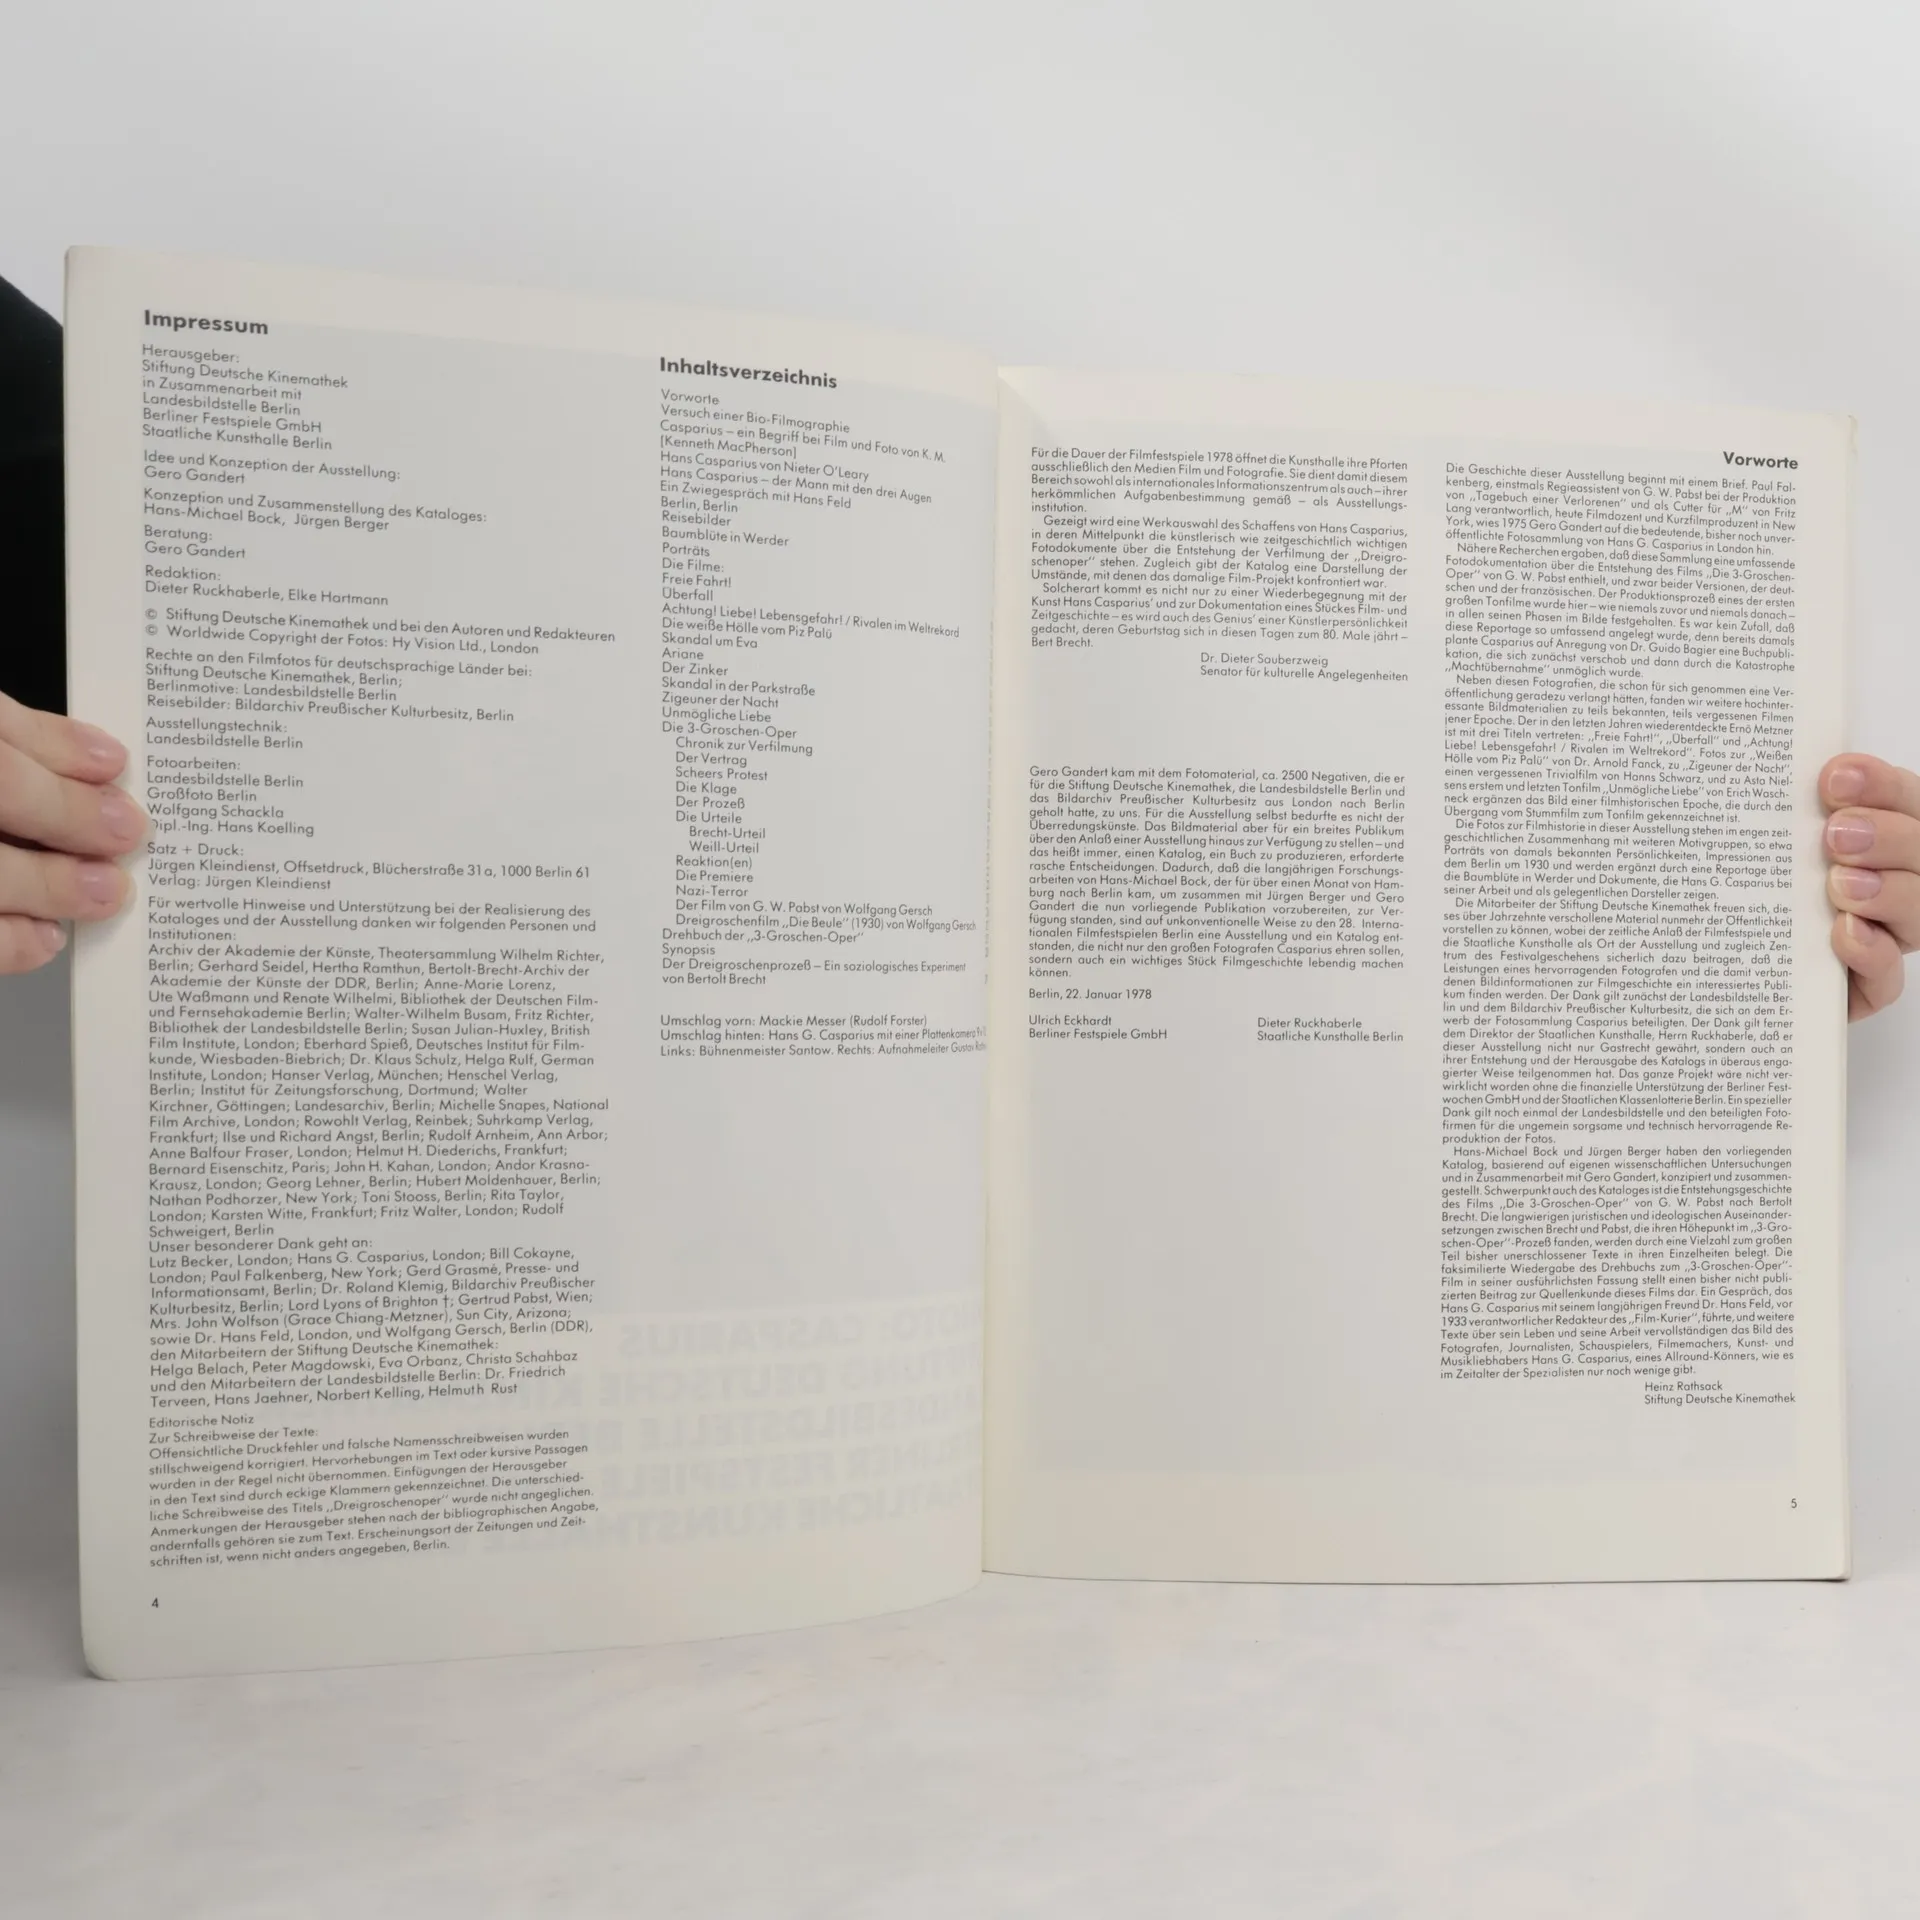 Impressum
Herausgeber:
Stiftung Deutsche Kinemathek
in Zusammenarbeit mit
Landesbildstelle Berlin
Berliner Festspiele GmbH
Staatliche Kunsthalle Berlin
Idee und Konzeption der Ausstellung:
Gero Gandert
Konzeption und Zusammenstellung des Kataloges:
Hans-Michael Bock, Jürgen Berger
Beratung:
Gero Gandert
Redaktion:
Dieter Ruckhaberle, Elke Hartmann
© Stiftung Deutsche Kinemathek und bei den Autoren und Redakteuren
© Worldwide Copyright der Fotos: Hy Vision Ltd., London
Rechte an den Filmfotos für deutschsprachige Länder bei:
Stiftung Deutsche Kinemathek, Berlin;
Berlinmotive: Landesbildstelle Berlin
Reisebilder: Bildarchiv Preußischer Kulturbesitz, Berlin
Ausstellungstechnik:
Landesbildstelle Berlin
Fotoarbeiten:
Landesbildstelle Berlin
Großfoto Berlin
Wolfgang Schackla
Dipl.-Ing. Hans Koelling
Satz + Druck:
Jürgen Kleindienst, Offsetdruck, Blücherstraße 31a, 1000 Berlin 61
Verlag: Jürgen Kleindienst
Für wertvolle Hinweise und Unterstützung bei der Realisierung des
Kataloges und der Ausstellung danken wir folgenden Personen und
Institutionen:
Archiv der Akademie der Künste, Theatersammlung Wilhelm Richter,
Berlin; Gerhard Seidel, Hertha Ramthun, Bertolt-Brecht-Archiv der
Akademie der Künste der DDR, Berlin; Anne-Marie Lorenz,
Ute Waßmann und Renate Wilhelmi, Bibliothek der Deutschen Film-
und Fernsehakademie Berlin; Walter-Wilhelm Busam, Fritz Richter,
Bibliothek der Landesbildstelle Berlin; Susan Julian-Huxley, British
Film Institute, London; Eberhard Spieß, Deutsches Institut für Film-
kunde, Wiesbaden-Biebrich; Dr. Klaus Schulz, Helga Rulf, German
Institute, London; Hanser Verlag, München; Henschel Verlag,
Berlin; Institut für Zeitungsforschung, Dortmund; Walter
Kirchner, Göttingen; Landesarchiv, Berlin; Michelle Snapes, National
Film Archive, London; Rowohlt Verlag, Reinbek; Suhrkamp Verlag,
Frankfurt; Ilse und Richard Angst, Berlin; Rudolf Arnheim, Ann Arbor;
Anne Balfour Fraser, London; Helmut H. Diederichs, Frankfurt;
Bernard Eisenschitz, Paris; John H. Kahan, London; Andor Krasna-
Krausz, London; Georg Lehner, Berlin; Hubert Moldenhauer, Berlin;
Nathan Podhorzer, New York; Toni Stooss, Berlin; Rita Taylor,
London; Karsten Witte, Frankfurt; Fritz Walter, London; Rudolf
Schweigert, Berlin
Unser besonderer Dank geht an:
Lutz Becker, London; Hans G. Casparius, London; Bill Cokayne,
London; Paul Falkenberg, New York; Gerd Grasmé, Presse- und
Informationsamt, Berlin; Dr. Roland Klemig, Bildarchiv Preußischer
Kulturbesitz, Berlin; Lord Lyons of Brighton †; Gertrud Pabst, Wien;
Mrs. John Wolfson (Grace Chiang-Metzner), Sun City, Arizona;
sowie Dr. Hans Feld, London, und Wolfgang Gersch, Berlin (DDR),
den Mitarbeitern der Stiftung Deutsche Kinemathek:
Helga Belach, Peter Magdowski, Eva Orbanz, Christa Schahbaz
und den Mitarbeitern der Landesbildstelle Berlin: Dr. Friedrich
Terveen, Hans Jaehner, Norbert Kelling, Helmuth Rust
Editorische Notiz
Zur Schreibweise der Texte:
Offensichtliche Druckfehler und falsche Namensschreibweisen wurden
stillschweigend korrigiert. Hervorhebungen im Text oder kursive Passagen
wurden in der Regel nicht übernommen. Einfügungen der Herausgeber
in den Text sind durch eckige Klammern gekennzeichnet. Die unterschied-
liche Schreibweise des Titels „Dreigroschenoper" wurde nicht angeglichen.
Anmerkungen der Herausgeber stehen nach der bibliographischen Angabe,
andernfalls gehören sie zum Text. Erscheinungsort der Zeitungen und Zeit-
schriften ist, wenn nicht anders angegeben, Berlin.
4
Inhaltsverzeichnis
Vorworte
Versuch einer Bio-Filmographie
Casparius – ein Begriff bei Film und Foto von K. M.
[Kenneth MacPherson]
Hans Casparius von Nieter O'Leary
Hans Casparius – der Mann mit den drei Augen
Ein Zwiegespräch mit Hans Feld
Berlin, Berlin
Reisebilder
Baumblüte in Werder
Porträts
Die Filme:
Freie Fahrt!
Überfall
Achtung! Liebe! Lebensgefahr! / Rivalen im Weltrekord
Die weiße Hölle vom Piz Palü
Skandal um Eva
Ariane
Der Zinker
Skandal in der Parkstraße
Zigeuner der Nacht
Unmögliche Liebe
Die 3-Groschen-Oper
Chronik zur Verfilmung
Der Vertrag
Scheers Protest
Die Klage
Der Prozeß
Die Urteile
Brecht-Urteil
Weill-Urteil
Reaktion(en)
Die Premiere
Nazi-Terror
Der Film von G. W. Pabst von Wolfgang Gersch
Dreigroschenfilm „Die Beule" (1930) von Wolfgang Gersch
Drehbuch der „3-Groschen-Oper"
Synopsis
Der Dreigroschenprozeß – Ein soziologisches Experiment
von Bertolt Brecht
Umschlag vorn: Mackie Messer (Rudolf Forster)
Umschlag hinten: Hans G. Casparius mit einer Plattenkamera
Links: Bühnenmeister Santow. Rechts: Aufnahmeleiter Gustav
Für die Dauer der Filmfestspiele 1978 öffnet die Kunsthalle ihre Pforten
ausschließlich den Medien Film und Fotografie. Sie dient damit diesem
Bereich sowohl als internationales Informationszentrum als auch – ihrer
herkömmlichen Aufgabenbestimmung gemäß – als Ausstellungs-
institution.
Gezeigt wird eine Werkauswahl des Schaffens von Hans Casparius,
in deren Mittelpunkt die künstlerisch wie zeitgeschichtlich wichtigen
Fotodokumente über die Entstehung der Verfilmung der „Dreigro-
schenoper" stehen. Zugleich gibt der Katalog eine Darstellung der
Umstände, mit denen das damalige Film-Projekt konfrontiert war.
Solcherart kommt es nicht nur zu einer Wiederbegegnung mit der
Kunst Hans Casparius' und zur Dokumentation eines Stückes Film- und
Zeitgeschichte – es wird auch des Genius' einer Künstlerpersönlichkeit
gedacht, deren Geburtstag sich in diesen Tagen zum 80. Male jährt –
Bert Brecht.
Dr. Dieter Sauberzweig
Senator für kulturelle Angelegenheiten
Gero Gandert kam mit dem Fotomaterial, ca. 2500 Negativen, die er
für die Stiftung Deutsche Kinemathek, die Landesbildstelle Berlin und
das Bildarchiv Preußischer Kulturbesitz aus London nach Berlin
geholt hatte, zu uns. Für die Ausstellung selbst bedurfte es nicht der
Überredungskünste. Das Bildmaterial aber für ein breites Publikum
über den Anlaß einer Ausstellung hinaus zur Verfügung zu stellen – und
das heißt immer, einen Katalog, ein Buch zu produzieren, erforderte
rasche Entscheidungen. Dadurch, daß die langjährigen Forschungs-
arbeiten von Hans-Michael Bock, der für über einen Monat von Ham-
burg nach Berlin kam, um zusammen mit Jürgen Berger und Gero
Gandert die nun vorliegende Publikation vorzubereiten, zur Ver-
fügung standen, sind auf unkonventionelle Weise zu den 28. Interna-
tionalen Filmfestspielen Berlin eine Ausstellung und ein Katalog ent-
standen, die nicht nur den großen Fotografen Casparius ehren sollen,
sondern auch ein wichtiges Stück Filmgeschichte lebendig machen
können.
Berlin, 22. Januar 1978
Ulrich Eckhardt
Berliner Festspiele GmbH
Dieter Ruckhaberle
Staatliche Kunsthalle Berlin
Vorworte
Die Geschichte dieser Ausstellung beginnt mit einem Brief. Paul Fal-
kenberg, einstmals Regieassistent von G. W. Pabst bei der Produktion
von „Tagebuch einer Verlorenen" und als Cutter für „M" von Fritz
Lang verantwortlich, heute Filmdozent und Kurzfilmproduzent in New
York, wies 1975 Gero Gandert auf die bedeutende, bisher noch unver-
öffentlichte Fotosammlung von Hans G. Casparius in London hin.
Nähere Recherchen ergaben, daß diese Sammlung eine umfassende
Fotodokumentation über die Entstehung des Films „Die 3-Groschen-
Oper" von G. W. Pabst enthielt, und zwar beider Versionen, der deut-
schen und der französischen. Der Produktionsprozeß eines der ersten
großen Tonfilme wurde hier – wie niemals zuvor und niemals danach –
in allen seinen Phasen im Bilde festgehalten. Es war kein Zufall, daß
diese Reportage so umfassend angelegt wurde, denn bereits damals
plante Casparius auf Anregung von Dr. Guido Bagier eine Buchpubli-
kation, die sich zunächst verschob und dann durch die Katastrophe
„Machtübernahme" unmöglich wurde.
Neben diesen Fotografien, die schon für sich genommen eine Ver-
öffentlichung geradezu verlangt hätten, fanden wir weitere hochinter-
essante Bildmaterialien zu teils bekannten, teils vergessenen Filmen
jener Epoche. Der in den letzten Jahren wiederentdeckte Ernö Metzner
ist mit drei Titeln vertreten: „Freie Fahrt!", „Überfall" und „Achtung!
Liebe! Lebensgefahr! / Rivalen im Weltrekord". Fotos zur „Weißen
Hölle vom Piz Palü" von Dr. Arnold Fanck, zu „Zigeuner der Nacht",
einen vergessenen Trivialfilm von Hanns Schwarz, und zu Asta Niel-
sens erstem und letzten Tonfilm „Unmögliche Liebe" von Erich Wasch-
neck ergänzen das Bild einer filmhistorischen Epoche, die durch den
Übergang vom Stummfilm zum Tonfilm gekennzeichnet ist.
Die Fotos zur Filmhistorie in dieser Ausstellung stehen im engen zeit-
geschichtlichen Zusammenhang mit weiteren Motivgruppen, so etwa
Porträts von damals bekannten Persönlichkeiten, Impressionen aus
dem Berlin um 1930 und werden ergänzt durch eine Reportage über
die Baumblüte in Werder und Dokumente, die Hans G. Casparius bei
seiner Arbeit und als gelegentlichen Darsteller zeigen.
Die Mitarbeiter der Stiftung Deutsche Kinemathek freuen sich, die-
ses über Jahrzehnte verschollene Material nunmehr der Öffentlichkeit
vorstellen zu können, wobei der zeitliche Anlaß der Filmfestspiele und
die Staatliche Kunsthalle als Ort der Ausstellung und zugleich Zen-
trum des Festivalgeschehens sicherlich dazu beitragen, daß die
Leistungen eines hervorragenden Fotografen und die damit verbun-
denen Bildinformationen zur Filmgeschichte ein interessiertes Publi-
kum finden werden. Der Dank gilt zunächst der Landesbildstelle Ber-
lin und dem Bildarchiv Preußischer Kulturbesitz, die sich an dem Er-
werb der Fotosammlung Casparius beteiligten. Der Dank gilt ferner
dem Direktor der Staatlichen Kunsthalle, Herrn Ruckhaberle, daß er
dieser Ausstellung nicht nur Gastrecht gewährt, sondern auch an
ihrer Entstehung und der Herausgabe des Katalogs in überaus enga-
gierter Weise teilgenommen hat. Das ganze Projekt wäre nicht ver-
wirklicht worden ohne die finanzielle Unterstützung der Berliner Fest-
wochen GmbH und der Staatlichen Klassenlotterie Berlin. Ein spezieller
Dank gilt noch einmal der Landesbildstelle und den beteiligten Foto-
firmen für die ungemein sorgsame und technisch hervorragende Re-
produktion der Fotos.
Hans-Michael Bock und Jürgen Berger haben den vorliegenden
Katalog, basierend auf eigenen wissenschaftlichen Untersuchungen
und in Zusammenarbeit mit Gero Gandert, konzipiert und zusammen-
gestellt. Schwerpunkt auch des Kataloges ist die Entstehungsgeschichte
des Films „Die 3-Groschen-Oper" von G. W. Pabst nach Bertolt
Brecht. Die langwierigen juristischen und ideologischen Auseinander-
setzungen zwischen Brecht und Pabst, die ihren Höhepunkt im „3-Gro-
schen-Oper"-Prozeß fanden, werden durch eine Vielzahl zum großen
Teil bisher unerschlossener Texte in ihren Einzelheiten belegt. Die
faksimilierte Wiedergabe des Drehbuchs zum „3-Groschen-Oper"-
Film in seiner ausführlichsten Fassung stellt einen bisher nicht publi-
zierten Beitrag zur Quellenkunde dieses Films dar. Ein Gespräch, das
Hans G. Casparius mit seinem langjährigen Freund Dr. Hans Feld, vor
1933 verantwortlicher Redakteur des „Film-Kurier", führte, und weitere
Texte über sein Leben und seine Arbeit vervollständigen das Bild des
Fotografen, Journalisten, Schauspielers, Filmemachers, Kunst- und
Musikliebhabers Hans G. Casparius, eines Allround-Könners, wie es
im Zeitalter der Spezialisten nur noch wenige gibt.
Heinz Rathsack
Stiftung Deutsche Kinemathek
5